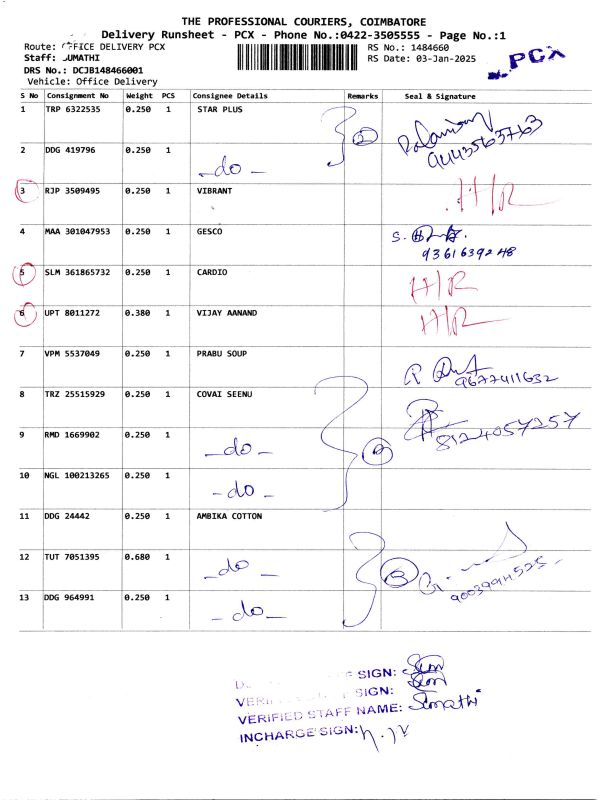 THE PROFESSIONAL COURIERS, COIMBATORE
Delivery Runsheet - PCX - Phone No.:0422-3505555 - Page No.:1
Route: OFFICE DELIVERY PCX RS No.: 1484660
Staff: SUMATHI RS Date: 03-Jan-2025
DRS No.: DCJB148466001 PCX
Vehicle: Office Delivery
S No Consignment No Weight PCS Consignee Details Remarks Seal & Signature
1 TRP 6322535 0.250 1 STAR PLUS 2 9443563763
2 DDG 419796 0.250 1 -do-
3 RJP 3509495 0.250 1 VIBRANT H/R
4 MAA 301047953 0.250 1 GESCO S.
9361639248
5 SLM 361865732 0.250 1 CARDIO H/R
6 UPT 8011272 0.380 1 VIJAY AANAND H/R
7 VPM 5537049 0.250 1 PRABU SOUP R
9677411632
8 TRZ 25515929 0.250 1 COVAI SEENU 8124057257
9 RMD 1669902 0.250 1 -do-
10 NGL 100213265 0.250 1 -do-
11 DDG 24442 0.250 1 AMBIKA COTTON
12 TUT 7051395 0.680 1 -do- 3
13 DDG 964991 0.250 1 -do-
SIGN:
VERI SIGN:
VERIFIED STAFF NAME: Sumathi
INCHARGE SIGN: